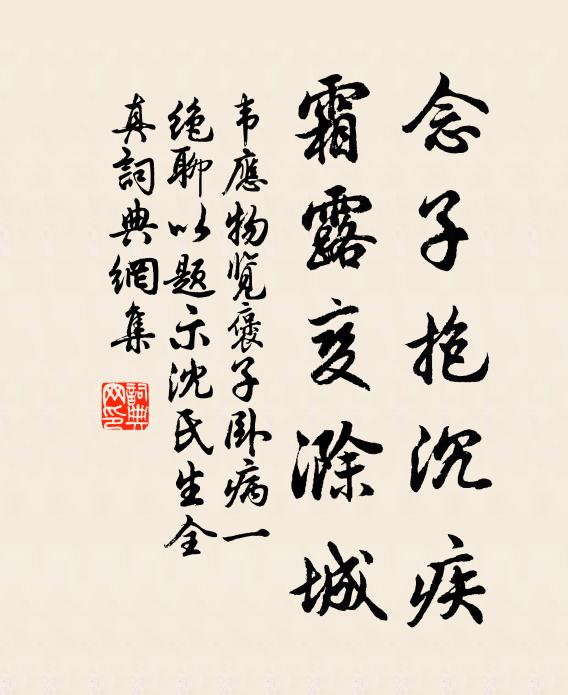 念子抱沉疾
霜露变滁城
韦應物覽褒子卧病一
绝聊以题示沈氏生全
真詞典網集
詞典網印